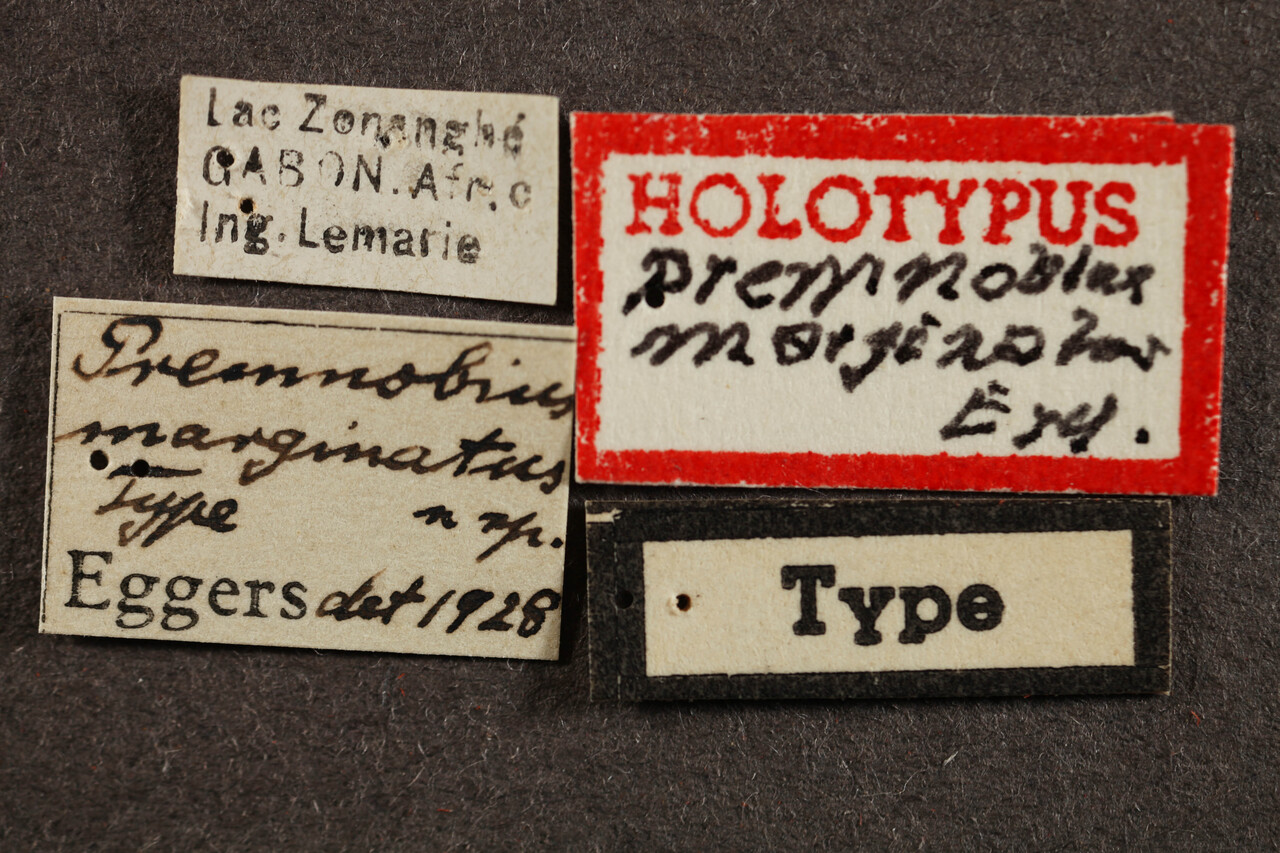 Lac Zonanghé
GABON. Afric
Ing. Lemarie
Premnobius
marginatus
Type n sp.
Eggers det 1928
HOLOTYPUS
Premnobius
marginatus
Egg.
Type